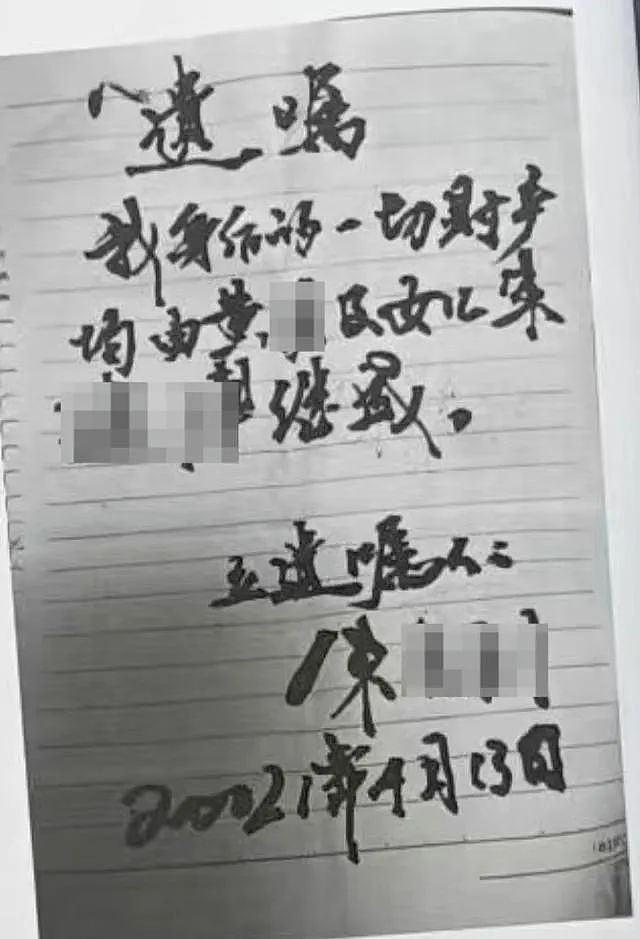 遗嘱
我身后的一切财产
均由黄 及女儿陈
继承。
立遗嘱人：
陈
20021年4月13日